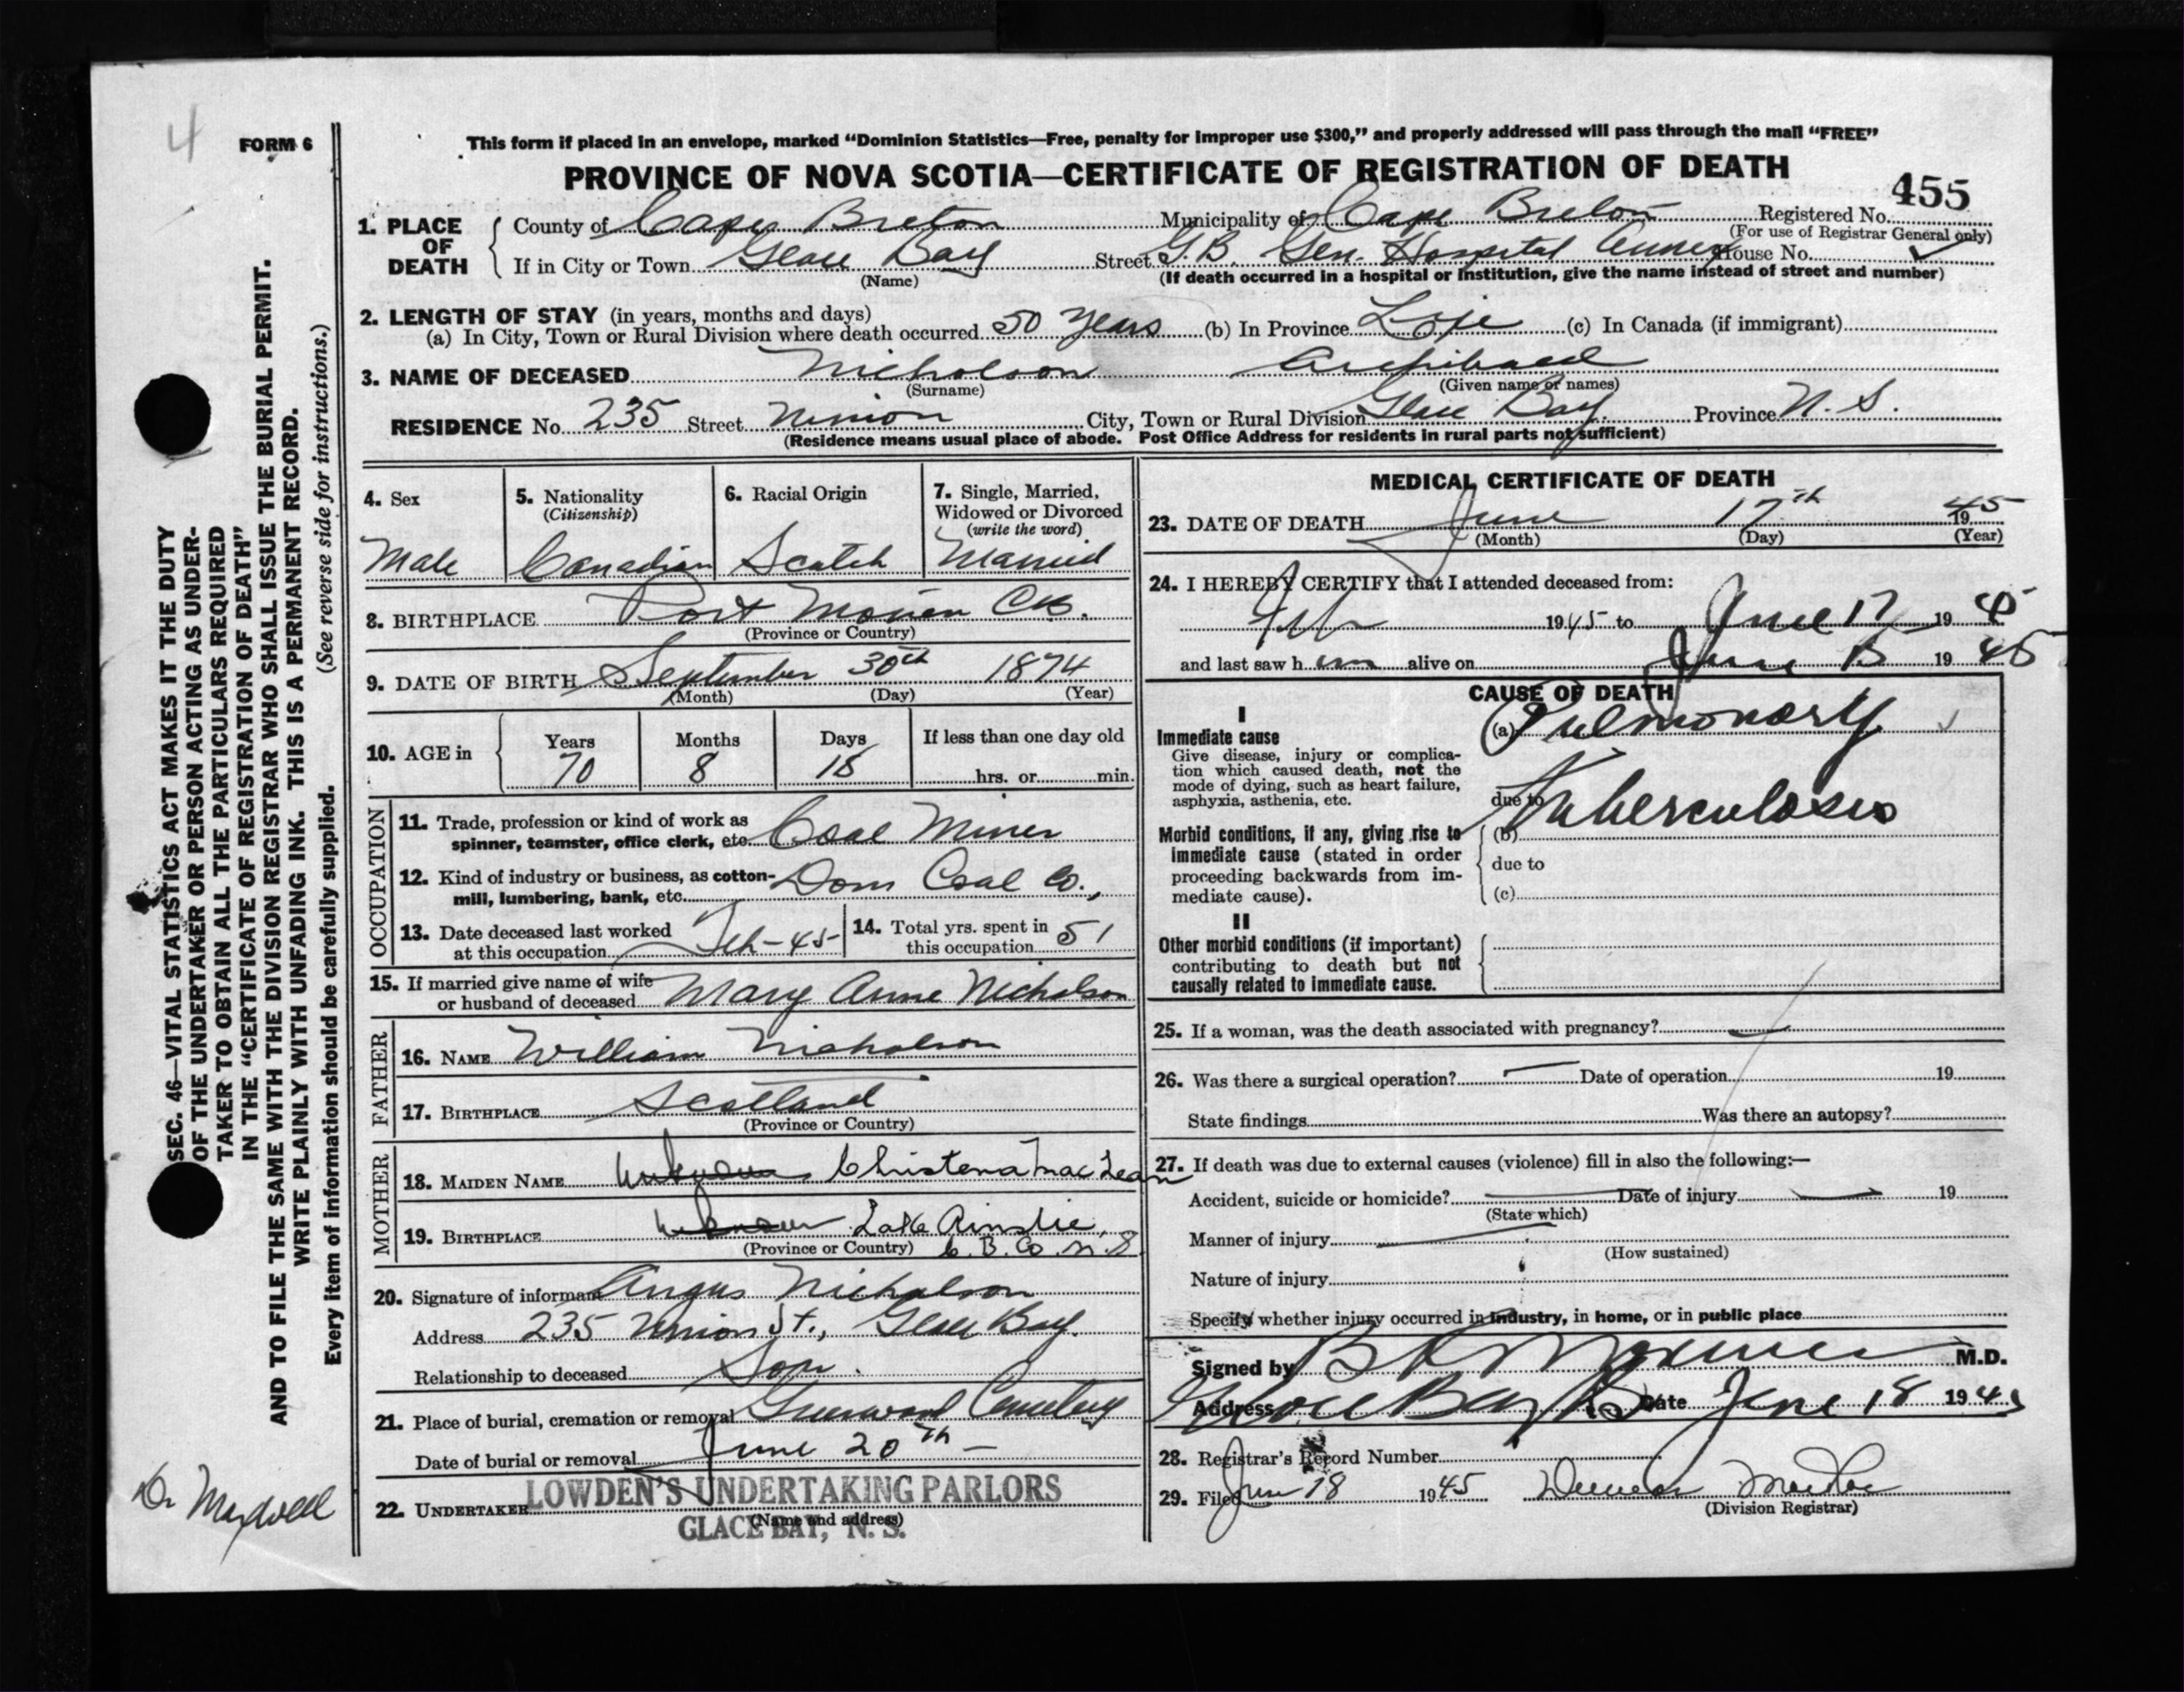 4
FORM 6
This form if placed in an envelope, marked “Dominion Statistics—Free, penalty for improper use $300,” and properly addressed will pass through the mail “FREE”
PROVINCE OF NOVA SCOTIA—CERTIFICATE OF REGISTRATION OF DEATH
455
1. PLACE OF DEATH County of Cape Breton Municipality of Cape Breton Registered No.
(For use of Registrar General only)
If in City or Town Glace Bay Street G.B. Gen. Hospital Annex House No.
(Name) (If death occurred in a hospital or institution, give the name instead of street and number)
2. LENGTH OF STAY (in years, months and days)
(a) In City, Town or Rural Division where death occurred 50 years (b) In Province Life (c) In Canada (if immigrant)
3. NAME OF DECEASED Nicholson Archibald
(Surname) (Given name or names)
RESIDENCE No. 235 Street Union City, Town or Rural Division Glace Bay. Province N. S.
(Residence means usual place of abode. Post Office Address for residents in rural parts not sufficient)
4. Sex 5. Nationality (Citizenship) 6. Racial Origin 7. Single, Married, Widowed or Divorced (write the word)
Male Canadian Scotch Married
8. BIRTHPLACE Port Morien C.B.
(Province or Country)
9. DATE OF BIRTH September 30th 1874
(Month) (Day) (Year)
10. AGE in Years Months Days If less than one day old
70 8 18 hrs. or min.
OCCUPATION
11. Trade, profession or kind of work as
spinner, teamster, office clerk, etc. Coal Miner
12. Kind of industry or business, as cotton-
mill, lumbering, bank, etc. Dom Coal Co.,
13. Date deceased last worked
at this occupation Feb-45
14. Total yrs. spent in
this occupation 51
15. If married give name of wife
or husband of deceased Mary Anne Nicholson
FATHER
16. NAME William Nicholson
17. BIRTHPLACE Scotland
(Province or Country)
MOTHER
18. MAIDEN NAME Unknown Christena MacLean
19. BIRTHPLACE Unknown Lake Ainslie,
(Province or Country) C. B. Co. N. S
20. Signature of informant Angus Nicholson
Address 235 Union St., Glace Bay.
Relationship to deceased Son.
21. Place of burial, cremation or removal Greenwood Cemetery
Date of burial or removal June 20th –
22. UNDERTAKER LOWDEN'S UNDERTAKING PARLORS
(Name and address)
GLACE BAY, N. S.
MEDICAL CERTIFICATE OF DEATH
23. DATE OF DEATH June 17th 1945
(Month) (Day) (Year)
24. I HEREBY CERTIFY that I attended deceased from:
Feb 1945 to June 17 1945
and last saw him alive on June 15 1945
CAUSE OF DEATH
I
Immediate cause
Give disease, injury or complica-
tion which caused death, not the
mode of dying, such as heart failure,
asphyxia, asthenia, etc.
(a) Pulmonary
due to Tuberculosis
Morbid conditions, if any, giving rise to
immediate cause (stated in order
proceeding backwards from im-
mediate cause).
(b)
due to
(c)
II
Other morbid conditions (if important)
contributing to death but not
causally related to immediate cause.
25. If a woman, was the death associated with pregnancy?
26. Was there a surgical operation? Date of operation 19
State findings Was there an autopsy?
27. If death was due to external causes (violence) fill in also the following:—
Accident, suicide or homicide? Date of injury 19
(State which)
Manner of injury
(How sustained)
Nature of injury
Specify whether injury occurred in industry, in home, or in public place
Signed by M.D.
Address Glace Bay Date June 18 1945
28. Registrar's Record Number
29. Filed June 18 1945 Duncan
(Division Registrar)
SEC. 46—VITAL STATISTICS ACT MAKES IT THE DUTY
OF THE UNDERTAKER OR PERSON ACTING AS UNDER-
TAKER TO OBTAIN ALL THE PARTICULARS REQUIRED
IN THE “CERTIFICATE OF REGISTRATION OF DEATH”
AND TO FILE THE SAME WITH THE DIVISION REGISTRAR WHO SHALL ISSUE THE BURIAL PERMIT.
WRITE PLAINLY WITH UNFADING INK. THIS IS A PERMANENT RECORD.
(See reverse side for instructions.)
Every item of information should be carefully supplied.
Dr Maxwell